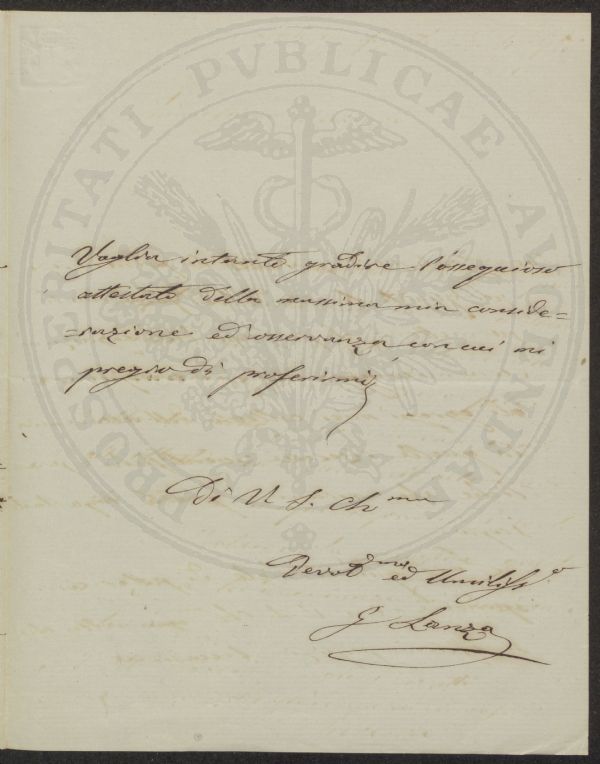 PROSPERITATI PVBLICAE AVGENDAE
Voglia intanto gradire l'ossequioso
attestato della massima mia conside=
=razione ed osservanza con cui mi
pregio di proferirmi
Di V. S. Ch.ma
Devot.mo ed Umiliss.o
G Lanza